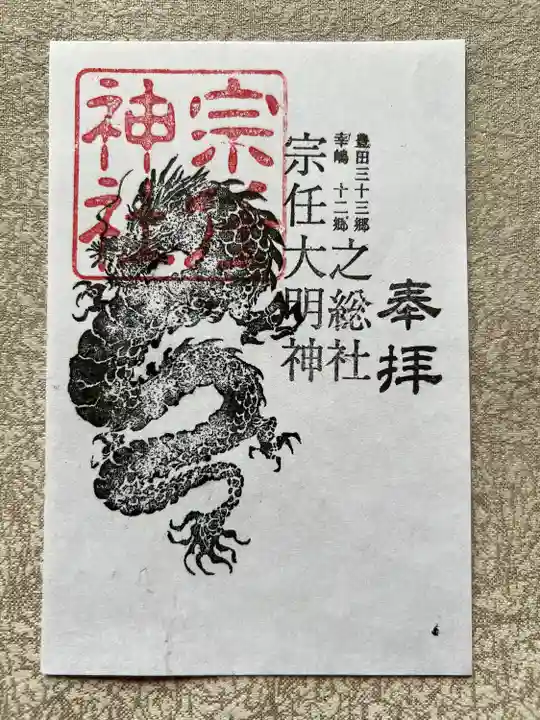 奉拝
豊田三十三郷
幸嶋 十二郷
之総社
宗任大明神
宗任
神社